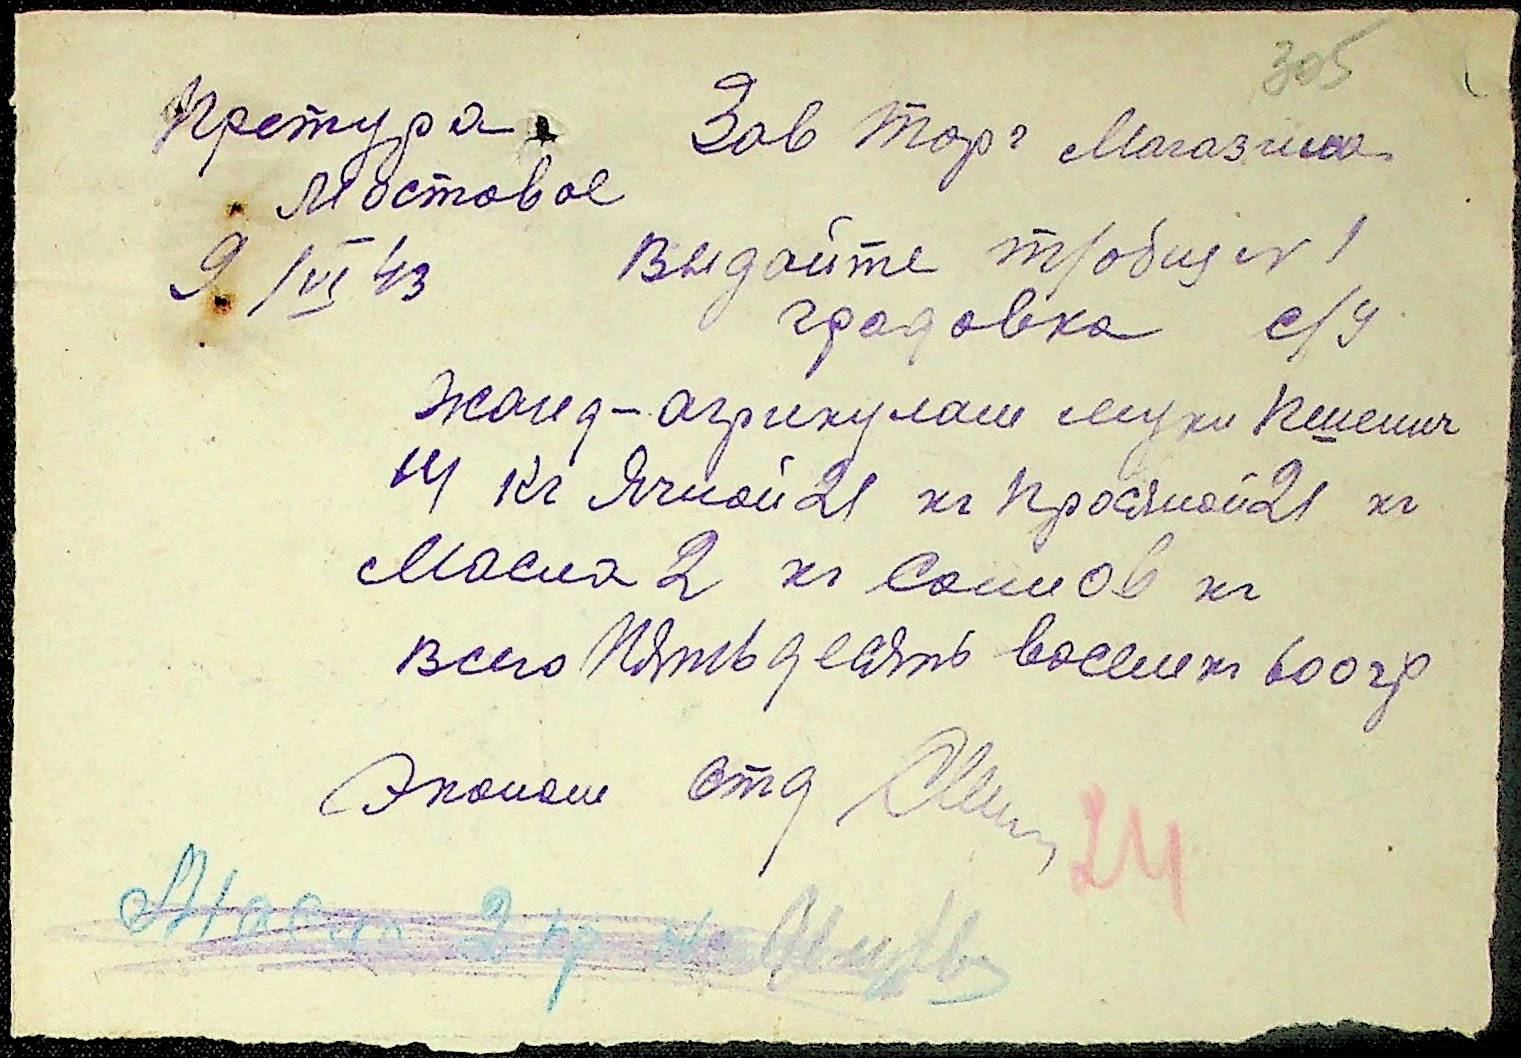 305
Претура
Мостовое
9/VI 43
Зав Торг Магазина
Выдайте
Градовка с/у
Жанд-агрикулаш муки Пшенич
14 кг Ячной 21 кг Просяной 21 кг
Масла 2 кг кг
Всего Пятьдесять восем кг 600 гр
Эконом отд
24
Масла 2 кг не